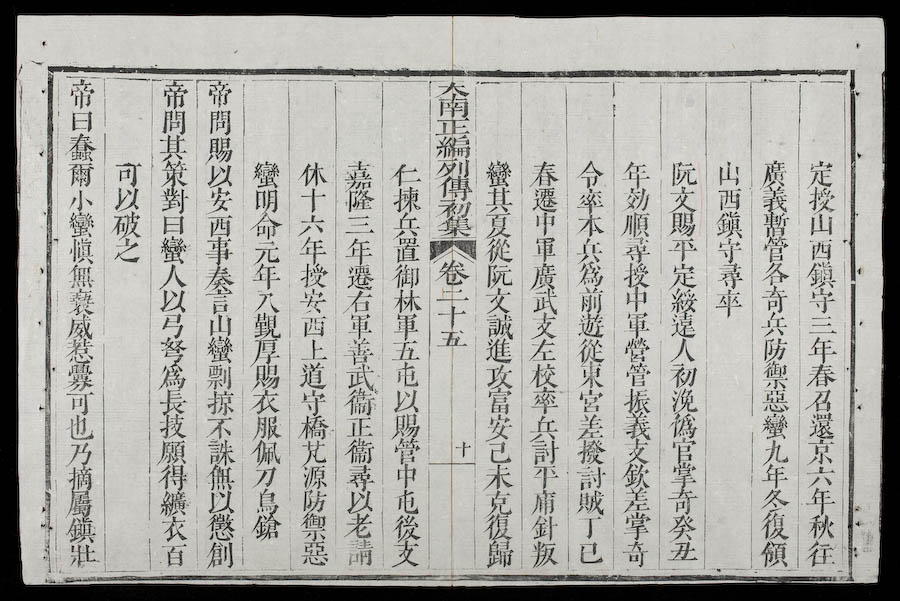 定授山西鎮守三年春召還京六年秋往
廣義暫管各奇兵防禦惡蠻九年冬復領
山西鎮守尋卒
阮文賜平定綏遠人初浼僞官掌奇癸丑
年効順尋授中軍營管振義支欽差掌奇
令率本兵爲前遊從東宮差撥討賊丁巳
春遷中軍廣武支左校率兵討平庯針叛
蠻其夏從阮文誠進攻富安己未克復歸
大南正編列傳初集 卷二十五 十
仁揀兵置御林軍五屯以賜管中屯後支
嘉隆三年遷右軍善武衞正衞尋以老請
休十六年授安西上道守橋芃源防禦惡
蠻明命元年入覲厚賜衣服佩刀鳥鎗
帝問賜以安西事奏言山蠻剽掠不誅無以懲創
帝問其策對曰蠻人以弓弩爲長技願得纊衣百
可以破之
帝曰蠢爾小蠻愼無褻威惹釁可也乃摘屬鎮壯